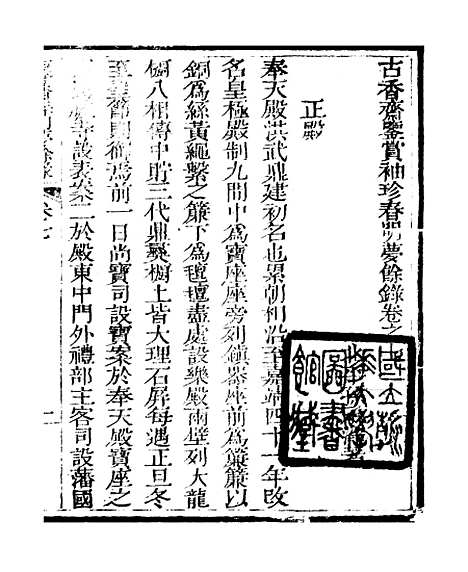 古香齋鑒賞袖珍春明夢餘錄卷之
正殿
奉天殿洪武鼎建初名也累朝相沿至嘉靖四十一年改
名皇極殿制九間中為寶座座旁列鎮器座前為簾簾以
銅為絲黃繩繫之簾下為毯毯盡處設樂殿兩壁列大龍
櫥八相傳中貯三代鼎彝櫥上皆大理石屏每遇正旦冬
至聖節則御焉前一日尚寶司設寶案於奉天殿寶座之
設表案二於殿東中門外禮部主客司設藩國